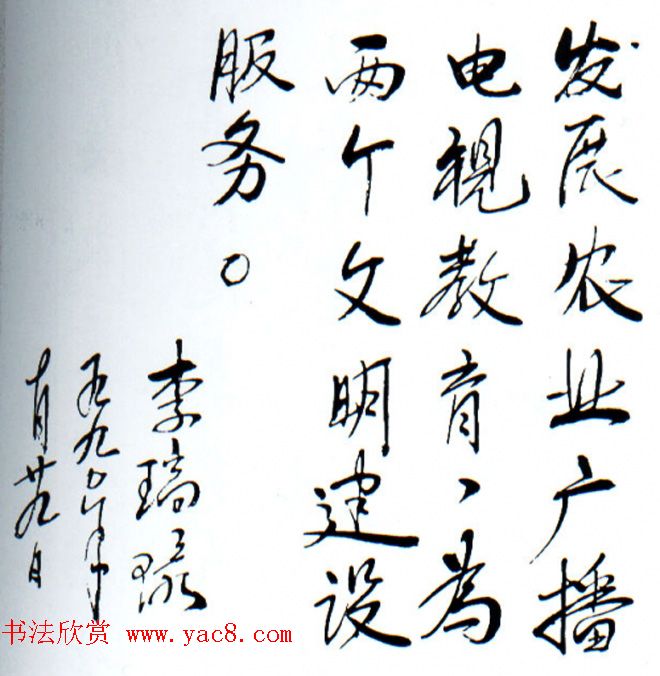 发展农业广播
电视教育、為
两个文明建设
服务。
李瑞环
一九九〇年
十月廿九日
书法欣赏 www.yac8.com